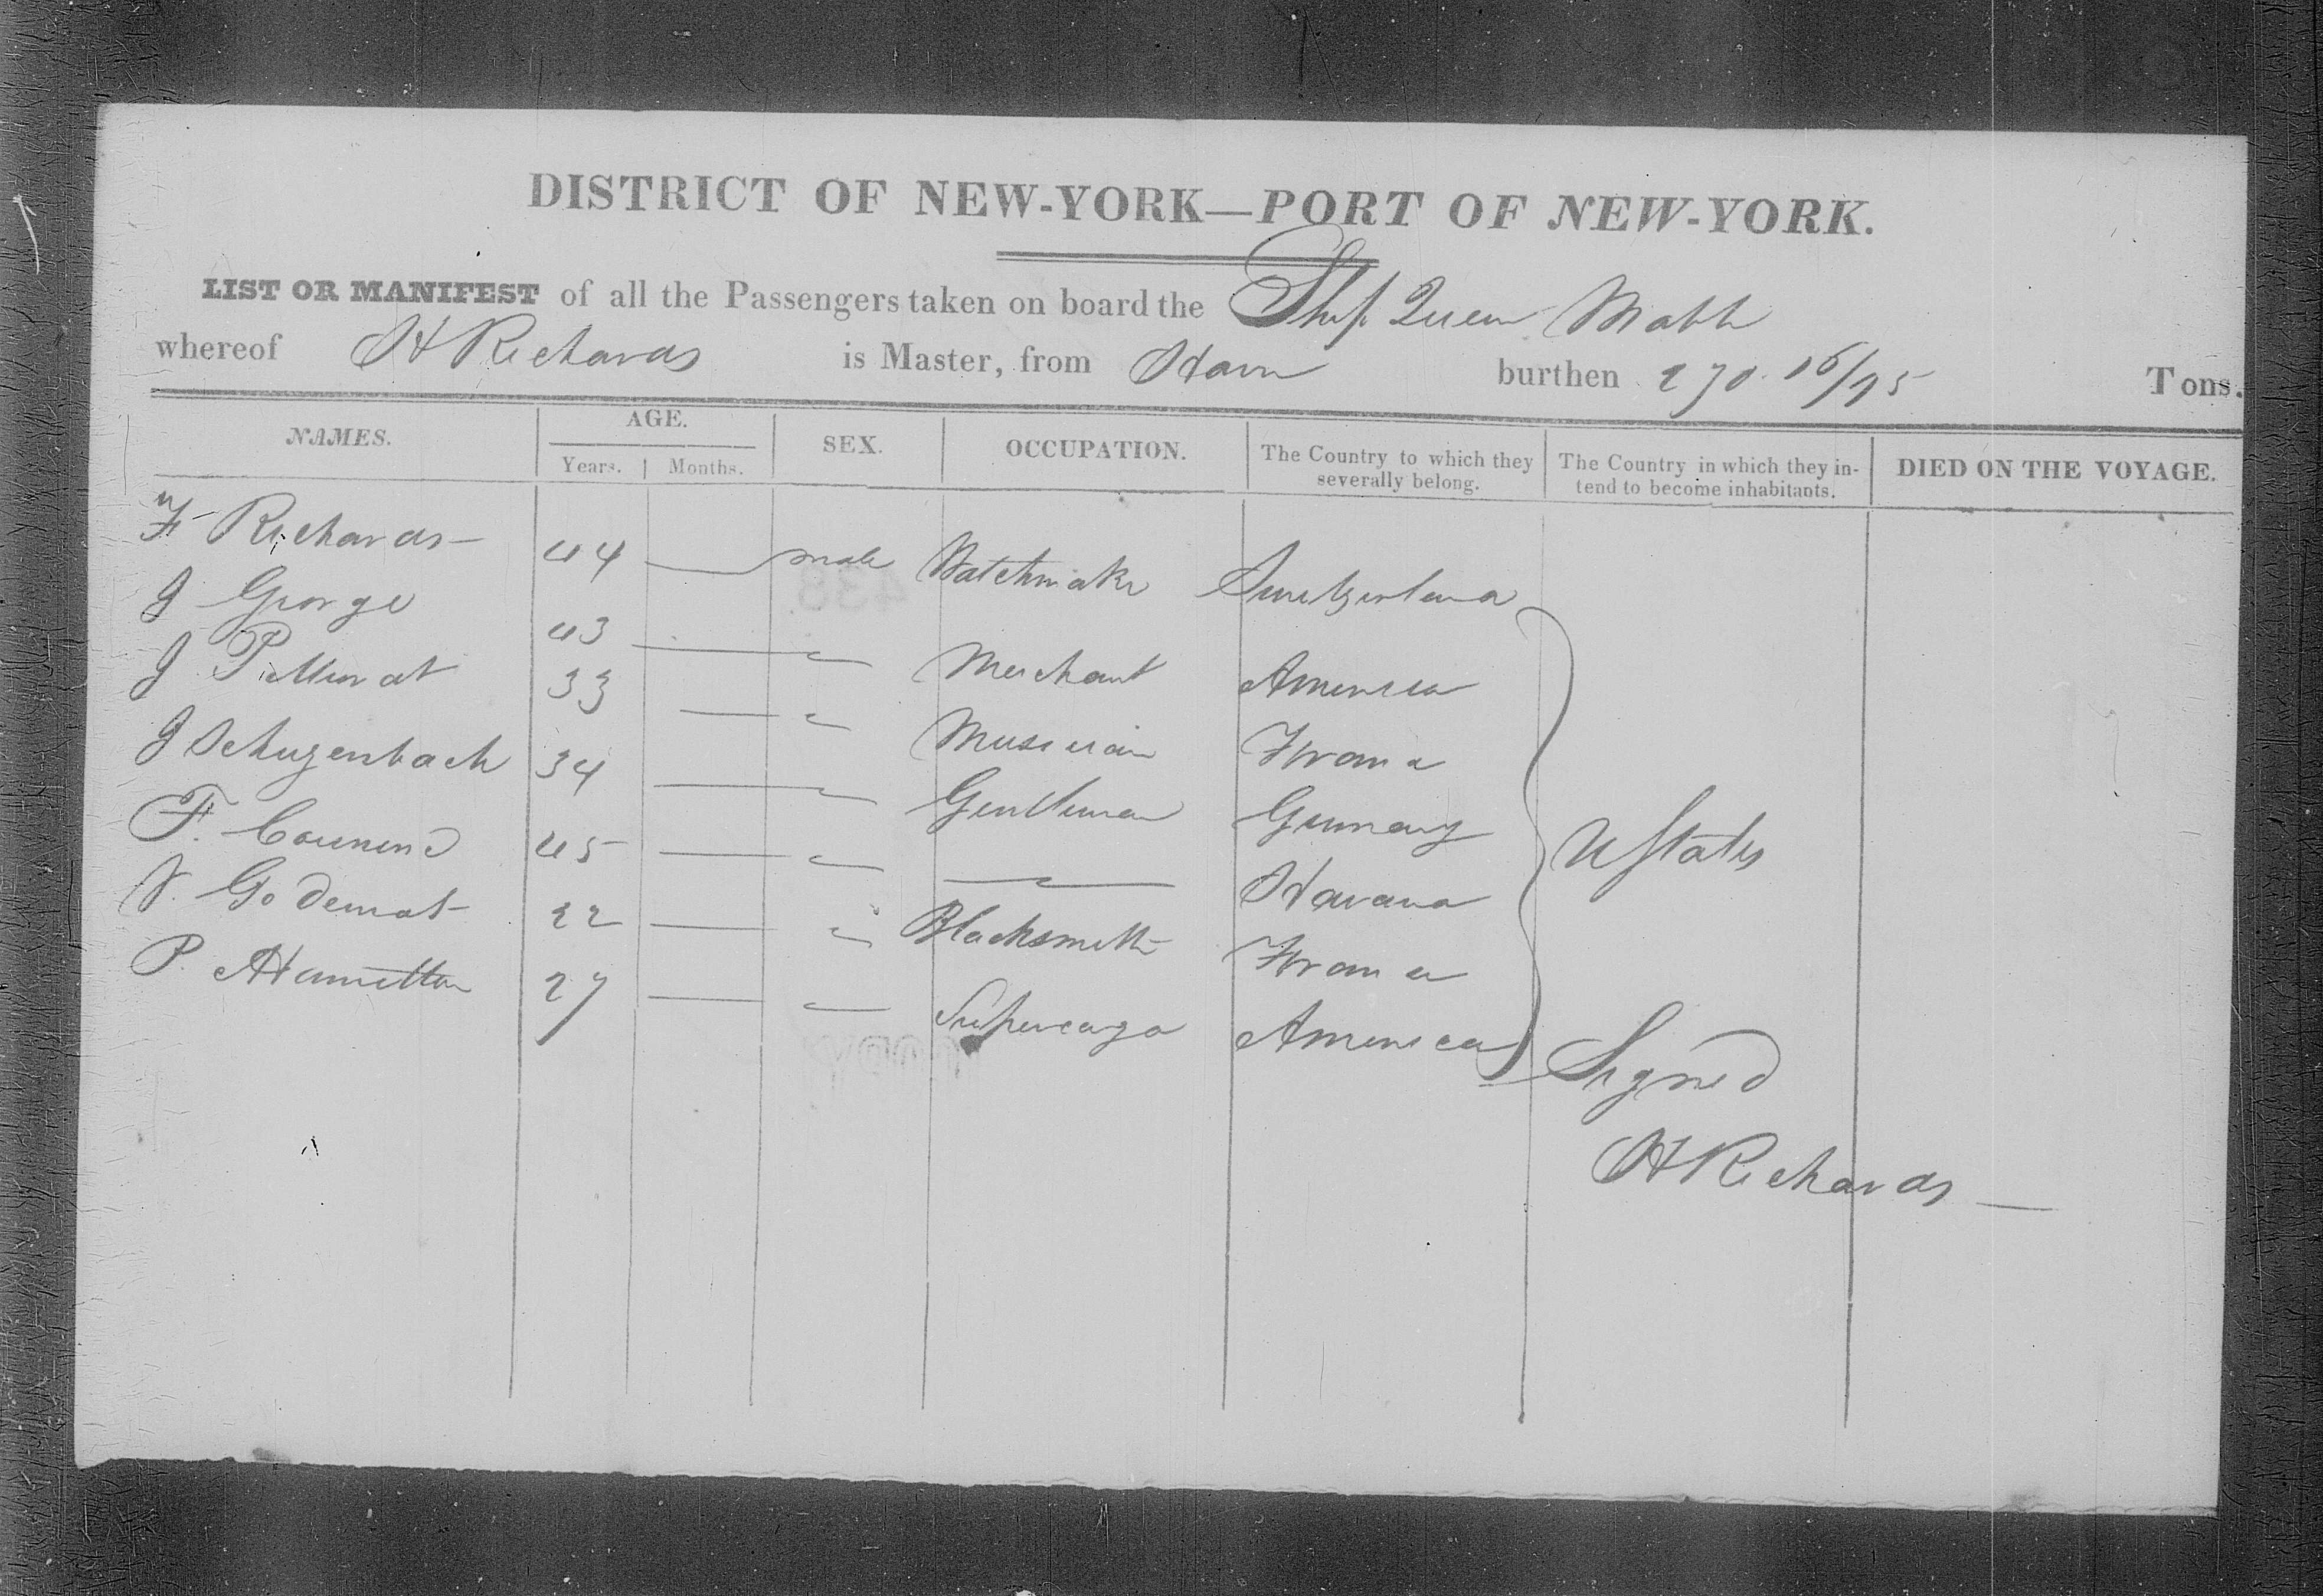 DISTRICT OF NEW-YORK—PORT OF NEW-YORK.
LIST OR MANIFEST of all the Passengers taken on board the Ship Queen Mabb
whereof H Richards is Master, from Havre burthen 270 16/95 Tons.
NAMES. AGE. Years. Months. SEX. OCCUPATION. The Country to which they severally belong. The Country in which they intend to become inhabitants. DIED ON THE VOYAGE.
F Richards 44 male Watchmaker Switzerland
J George 43 " Merchant America
J 33 " Musician France
J Schugenbach 34 " Gentleman Germany
F. 45 " Havana
Godemat 22 " Blacksmith France
P. Hamilton 27 " Supercargo America
U States
Signed
H Richards